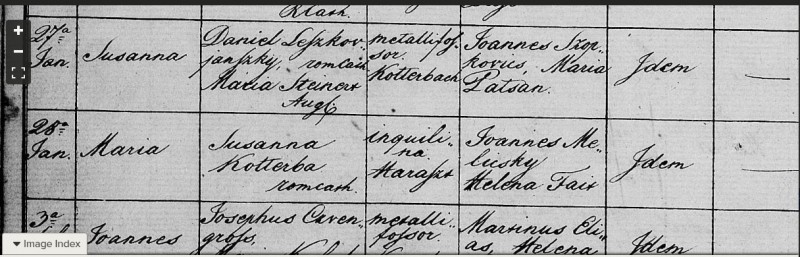 27ª Jan.
Susanna
Daniel Leszkov-
janszky, romcath.
Maria Steiner
Augb
metallifos-
sor.
Kotterbach
Joannes Szop-
kovics, Maria
Patsan.
Idem
28ª Jan.
Maria
Susanna
Kotterba
romcath.
inquili-
na
Haraszt
Joannes Me-
licsky
Helena Fair
Idem
3ª
Joannes
Josephus Caven-
gross,
metalli-
fossor.
Martinus Eli-
as, Helena
Idem
Image Index